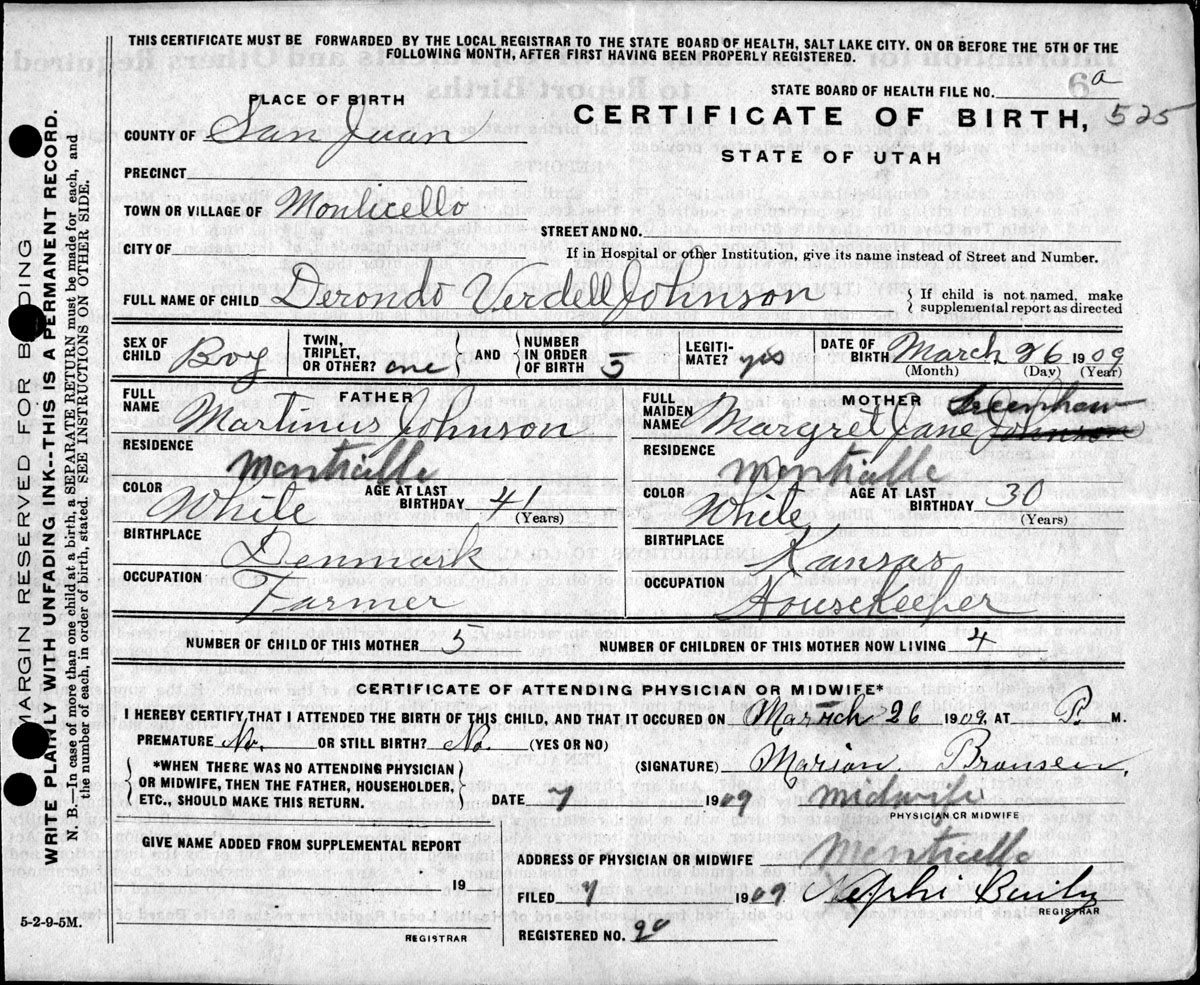 THIS CERTIFICATE MUST BE FORWARDED BY THE LOCAL REGISTRAR TO THE STATE BOARD OF HEALTH, SALT LAKE CITY. ON OR BEFORE THE 5TH OF THE
FOLLOWING MONTH, AFTER FIRST HAVING BEEN PROPERLY REGISTERED.
STATE BOARD OF HEALTH FILE NO. 6 a
PLACE OF BIRTH
CERTIFICATE OF BIRTH, 525
COUNTY OF San Juan
STATE OF UTAH
PRECINCT
TOWN OR VILLAGE OF Monticello
STREET AND NO.
CITY OF
If in Hospital or other Institution, give its name instead of Street and Number.
FULL NAME OF CHILD Derondo Verdell Johnson
If child is not named, make
supplemental report as directed
SEX OF CHILD Boy
TWIN, TRIPLET, OR OTHER? one
AND
NUMBER IN ORDER OF BIRTH 5
LEGITI-MATE? yes
DATE OF BIRTH March 26 1909
(Month) (Day) (Year)
FATHER
FULL NAME Martinus Johnson
RESIDENCE Monticello
COLOR White
AGE AT LAST BIRTHDAY 41 (Years)
BIRTHPLACE Denmark
OCCUPATION Farmer
MOTHER
FULL MAIDEN NAME Margret Jane Johnson Greenhaw
RESIDENCE Monticello
COLOR White
AGE AT LAST BIRTHDAY 30 (Years)
BIRTHPLACE Kansas
OCCUPATION Housekeeper
NUMBER OF CHILD OF THIS MOTHER 5
NUMBER OF CHILDREN OF THIS MOTHER NOW LIVING 4
CERTIFICATE OF ATTENDING PHYSICIAN OR MIDWIFE*
I HEREBY CERTIFY, THAT I ATTENDED THE BIRTH OF THIS CHILD, AND THAT IT OCCURED ON March 26 1909. AT P. M.
PREMATURE No. OR STILL BIRTH? No. (YES OR NO)
*WHEN THERE WAS NO ATTENDING PHYSICIAN
OR MIDWIFE, THEN THE FATHER, HOUSEHOLDER,
ETC., SHOULD MAKE THIS RETURN.
(SIGNATURE) Marian Bronsen,
DATE 7 1909 midwife
PHYSICIAN OR MIDWIFE
GIVE NAME ADDED FROM SUPPLEMENTAL REPORT
19
REGISTRAR
ADDRESS OF PHYSICIAN OR MIDWIFE Monticello
FILED 7 1909. Nephi Baily
REGISTRAR
REGISTERED NO. 20
5-2-9-5M.
MARGIN RESERVED FOR BINDING
WRITE PLAINLY WITH UNFADING INK--THIS IS A PERMANENT RECORD.
N. B.—In case of more than one child at a birth, a SEPARATE RETURN must be made for each, and
the number of each, in order of birth, stated. SEE INSTRUCTIONS ON OTHER SIDE.